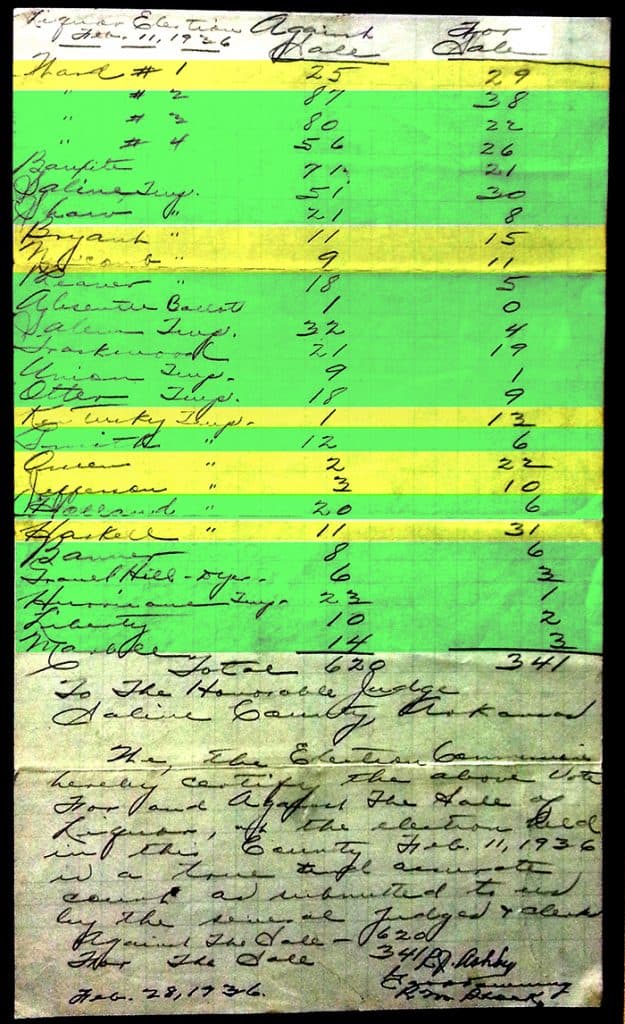 Liquor Election Against For
Feb. 11, 1936 Sale Sale
Ward # 1 25 29
" # 2 87 38
" # 3 80 22
" # 4 56 26
Bauxite 71 21
Saline Twp. 51 30
Shaw " 21 8
Bryant " 11 15
" 9 11
Beaver " 18 5
Absentee Ballott 1 0
Salem Twp. 32 4
Traskwood 21 19
Union Twp. 9 1
Otter Twp. 18 9
Kentucky Twp. 1 13
Smith " 12 6
Owen " 2 22
Jefferson " 3 10
Holland " 20 6
Haskell " 11 31
Banner 8 6
Gravel Hill - Dyer. 6 3
Hurricane Twp. 23 1
Liberty 10 2
Marble 14 3
Total 620 341
To The Honorable Judge
Saline County, Arkansas
We, the Election Commission
hereby certify the above Vote
For and Against The Sale of
Liquor, at the election held
in this County Feb. 11, 1936
is a true and accurate
count as submitted to us
by the several Judges & clerks
Against The Sale - 620
For The Sale 341 Ashby
Feb. 28, 1936.